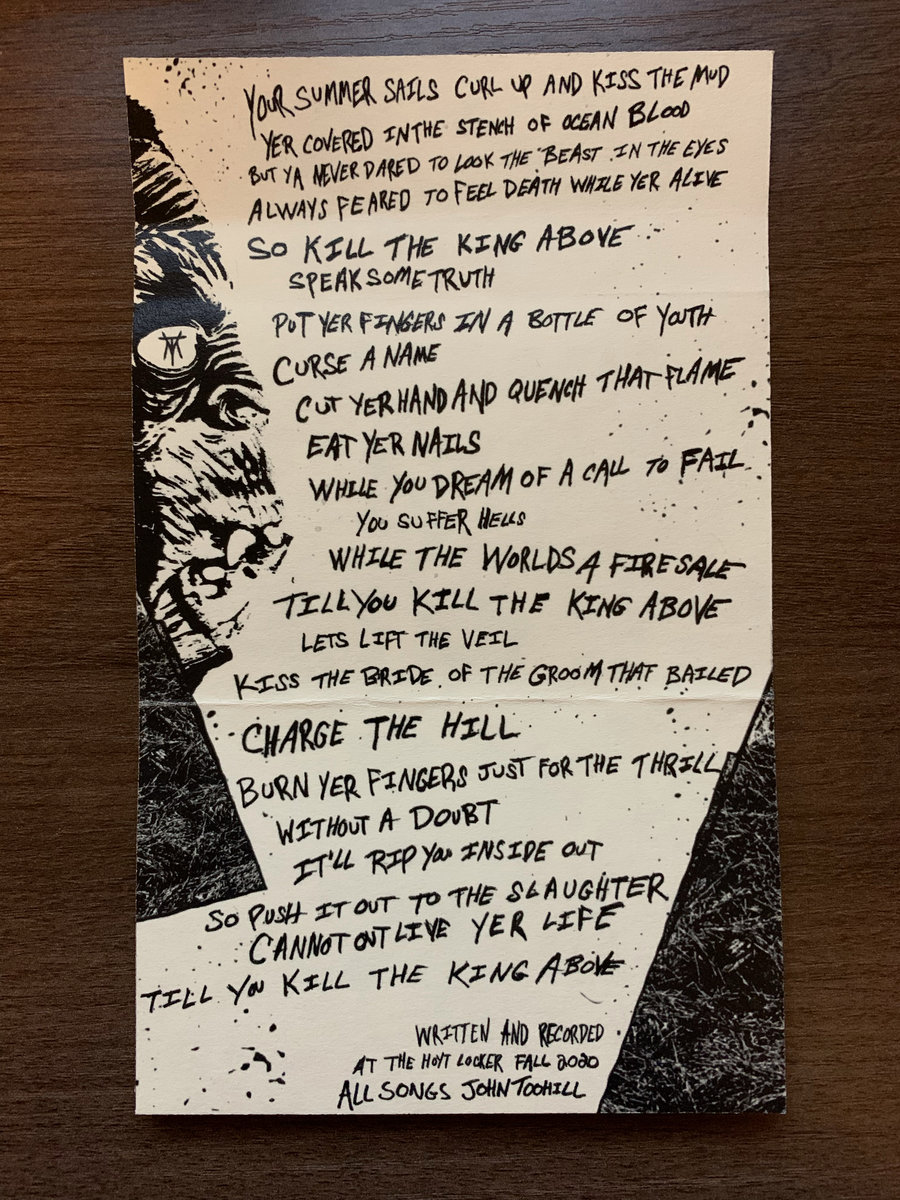 YOUR SUMMER SAILS CURL UP AND KISS THE MUD
YER COVERED IN THE STENCH OF OCEAN BLOOD
BUT YA NEVER DARED TO LOOK THE BEAST IN THE EYES
ALWAYS FEARED TO FEEL DEATH WHILE YER ALIVE
SO KILL THE KING ABOVE
SPEAK SOME TRUTH
PUT YER FINGERS IN A BOTTLE OF YOUTH
CURSE A NAME
CUT YER HAND AND QUENCH THAT FLAME
EAT YER NAILS
WHILE YOU DREAM OF A CALL TO FAIL
YOU SUFFER HELLS
WHILE THE WORLDS A FIRESALE
TILL YOU KILL THE KING ABOVE
LETS LIFT THE VEIL
KISS THE BRIDE OF THE GROOM THAT BAILED
CHARGE THE HILL
BURN YER FINGERS JUST FOR THE THRILL
WITHOUT A DOUBT
IT'LL RIP YOU INSIDE OUT
SO PUSH IT OUT TO THE SLAUGHTER
CANNOT OUTLIVE YER LIFE
TILL YOU KILL THE KING ABOVE
WRITTEN AND RECORDED
AT THE HOYT LOCKER FALL 2020
ALL SONGS JOHN TOOHILL